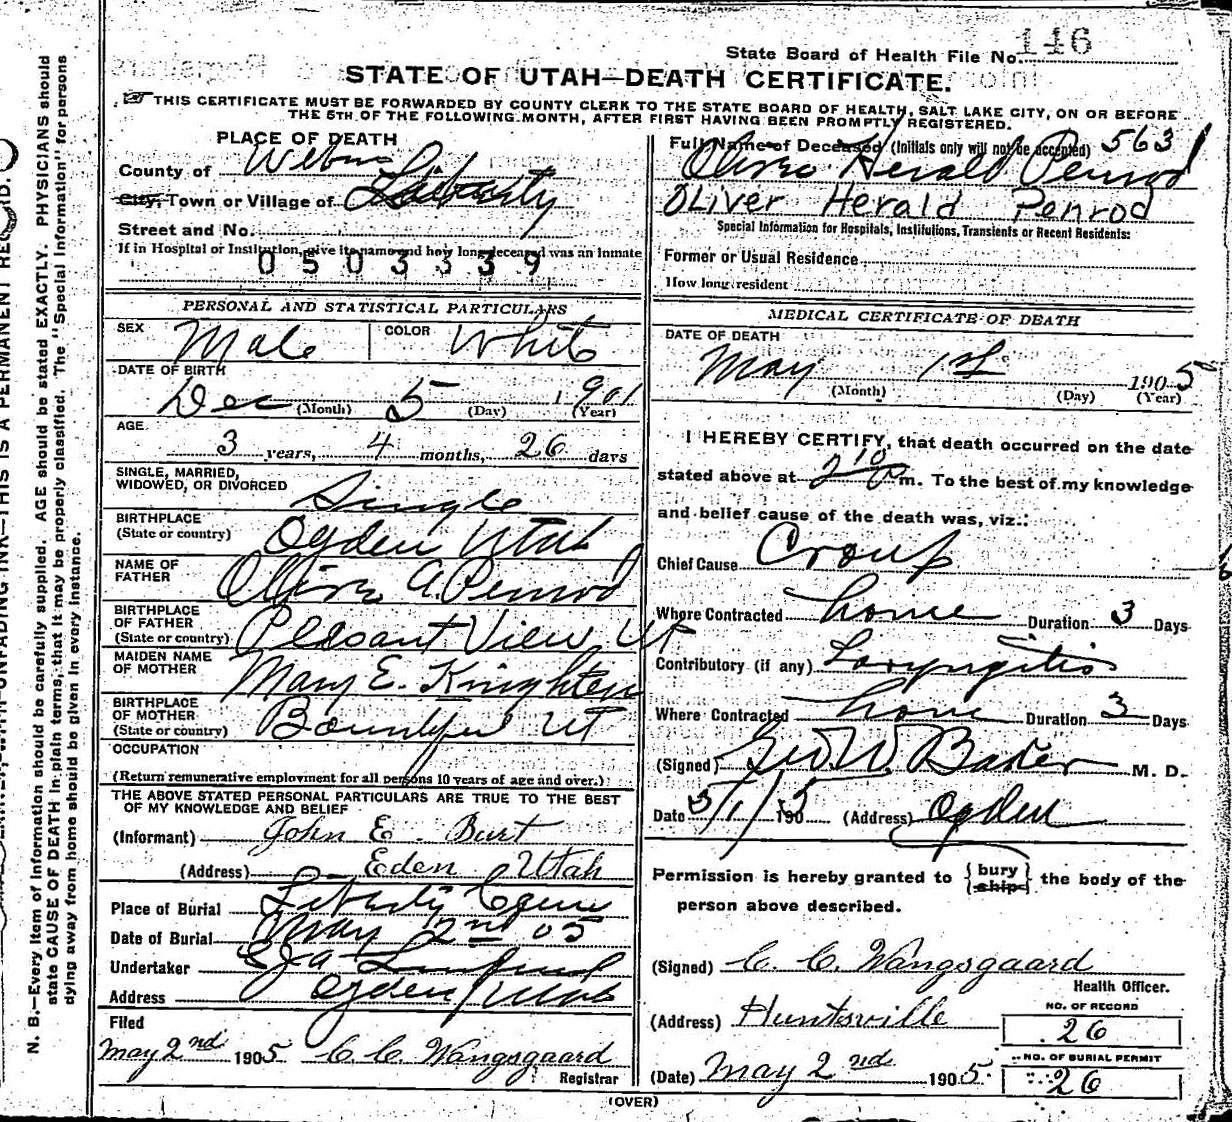 State Board of Health File No. 146
STATE OF UTAH—DEATH CERTIFICATE.
THIS CERTIFICATE MUST BE FORWARDED BY COUNTY CLERK TO THE STATE BOARD OF HEALTH, SALT LAKE CITY, ON OR BEFORE
THE 5TH OF THE FOLLOWING MONTH, AFTER FIRST HAVING BEEN PROMPTLY REGISTERED.
PLACE OF DEATH
County of Weber
City, Town or Village of Liberty
Street and No.
If in Hospital or Institution, give its name and how long deceased was an inmate
0503339
Full Name of Deceased (Initials only will not be accepted) 563
Oliver Herald Penrod
OLiver Herald Penrod
Special Information for Hospitals, Institutions, Transients or Recent Residents:
Former or Usual Residence
How long resident
PERSONAL AND STATISTICAL PARTICULARS
SEX Male COLOR White
DATE OF BIRTH
Dec (Month) 5 (Day) 1901 (Year)
AGE
3 years, 4 months, 26 days
SINGLE, MARRIED,
WIDOWED, OR DIVORCED Single
BIRTHPLACE
(State or country) Ogden Utah
NAME OF
FATHER Oliver A. Penrod
BIRTHPLACE
OF FATHER
(State or country) Pleasant View Ut
MAIDEN NAME
OF MOTHER Mary E. Knighton
BIRTHPLACE
OF MOTHER
(State or country) Bountiful Ut
OCCUPATION
(Return remunerative employment for all persons 10 years of age and over.)
THE ABOVE STATED PERSONAL PARTICULARS ARE TRUE TO THE BEST
OF MY KNOWLEDGE AND BELIEF
(Informant) John E. Burt
(Address) Eden Utah
Place of Burial Liberty Cem
Date of Burial May 2nd 05
Undertaker
Address Ogden Utah
Filed
May 2nd 1905 C. C. Wangsgaard
Registrar
MEDICAL CERTIFICATE OF DEATH
DATE OF DEATH
May 1st 1905
(Month) (Day) (Year)
I HEREBY CERTIFY, that death occurred on the date
stated above at 2 10 P m. To the best of my knowledge
and belief cause of the death was, viz.:
Chief Cause Croup
Where Contracted home Duration 3 Days
Contributory (if any) Laryngitis
Where Contracted home Duration 3 Days
(Signed) Geo W. Baker M. D.
Date 5/1/ 1905 (Address) Ogden
Permission is hereby granted to {bury ship} the body of the
person above described.
(Signed) C. C. Wangsgaard
Health Officer.
(Address) Huntsville
NO. OF RECORD
26
(Date) May 2nd 1905
NO. OF BURIAL PERMIT
26
(OVER)
N. B.—Every item of information should be carefully supplied. AGE should be stated EXACTLY. PHYSICIANS should
state CAUSE OF DEATH in plain terms, that it may be properly classified. The "Special Information" for persons
dying away from home should be given in every instance.